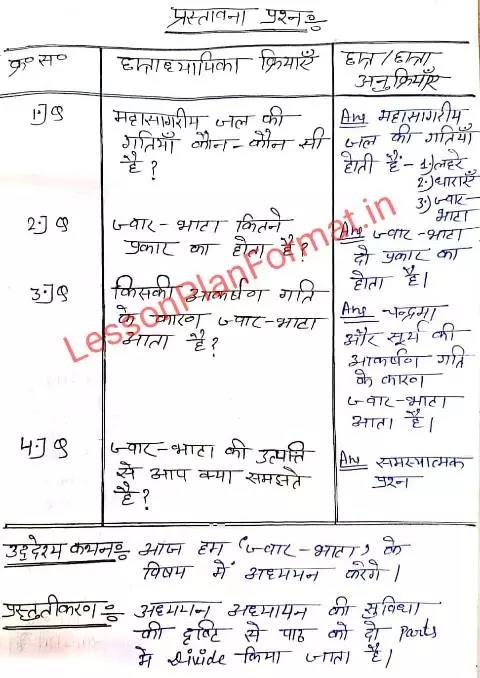 प्रस्तावना प्रश्न:
क्र० स०
छात्राध्यापिका क्रियाएँ
छात्र / छात्रा
अनुक्रियाएँ
1.] Q
महासागरीय जल की
गतियाँ कौन-कौन सी
है?
Ans महासागरीय
जल की गतियाँ
होती हैं - 1.) लहरे
2.) धाराएँ
3.) ज्वार-
भाटा
2.] Q
ज्वार-भाटा कितने
प्रकार का होता है?
Ans ज्वार-भाटा
दो प्रकार का
होता है।
3.] Q
किसकी आकर्षण गति
के कारण ज्वार-भाटा
आता है?
Ans चन्द्रमा
और सूर्य की
आकर्षण गति
के कारण
ज्वार-भाटा
आता है।
4.] Q
ज्वार-भाटा की उत्पत्ति
से आप क्या समझते
है?
Ans समस्यात्मक
प्रश्न
उद्देश्य कथन: आज हम 'ज्वार-भाटा' के
विषय में अध्ययन करेगे।
प्रस्तुतीकरण: अध्ययन अध्यापन की सुविधा
की दृष्टि से पाठ को दो Parts
में divide किया जाता है।
LessonPlanFormat.in